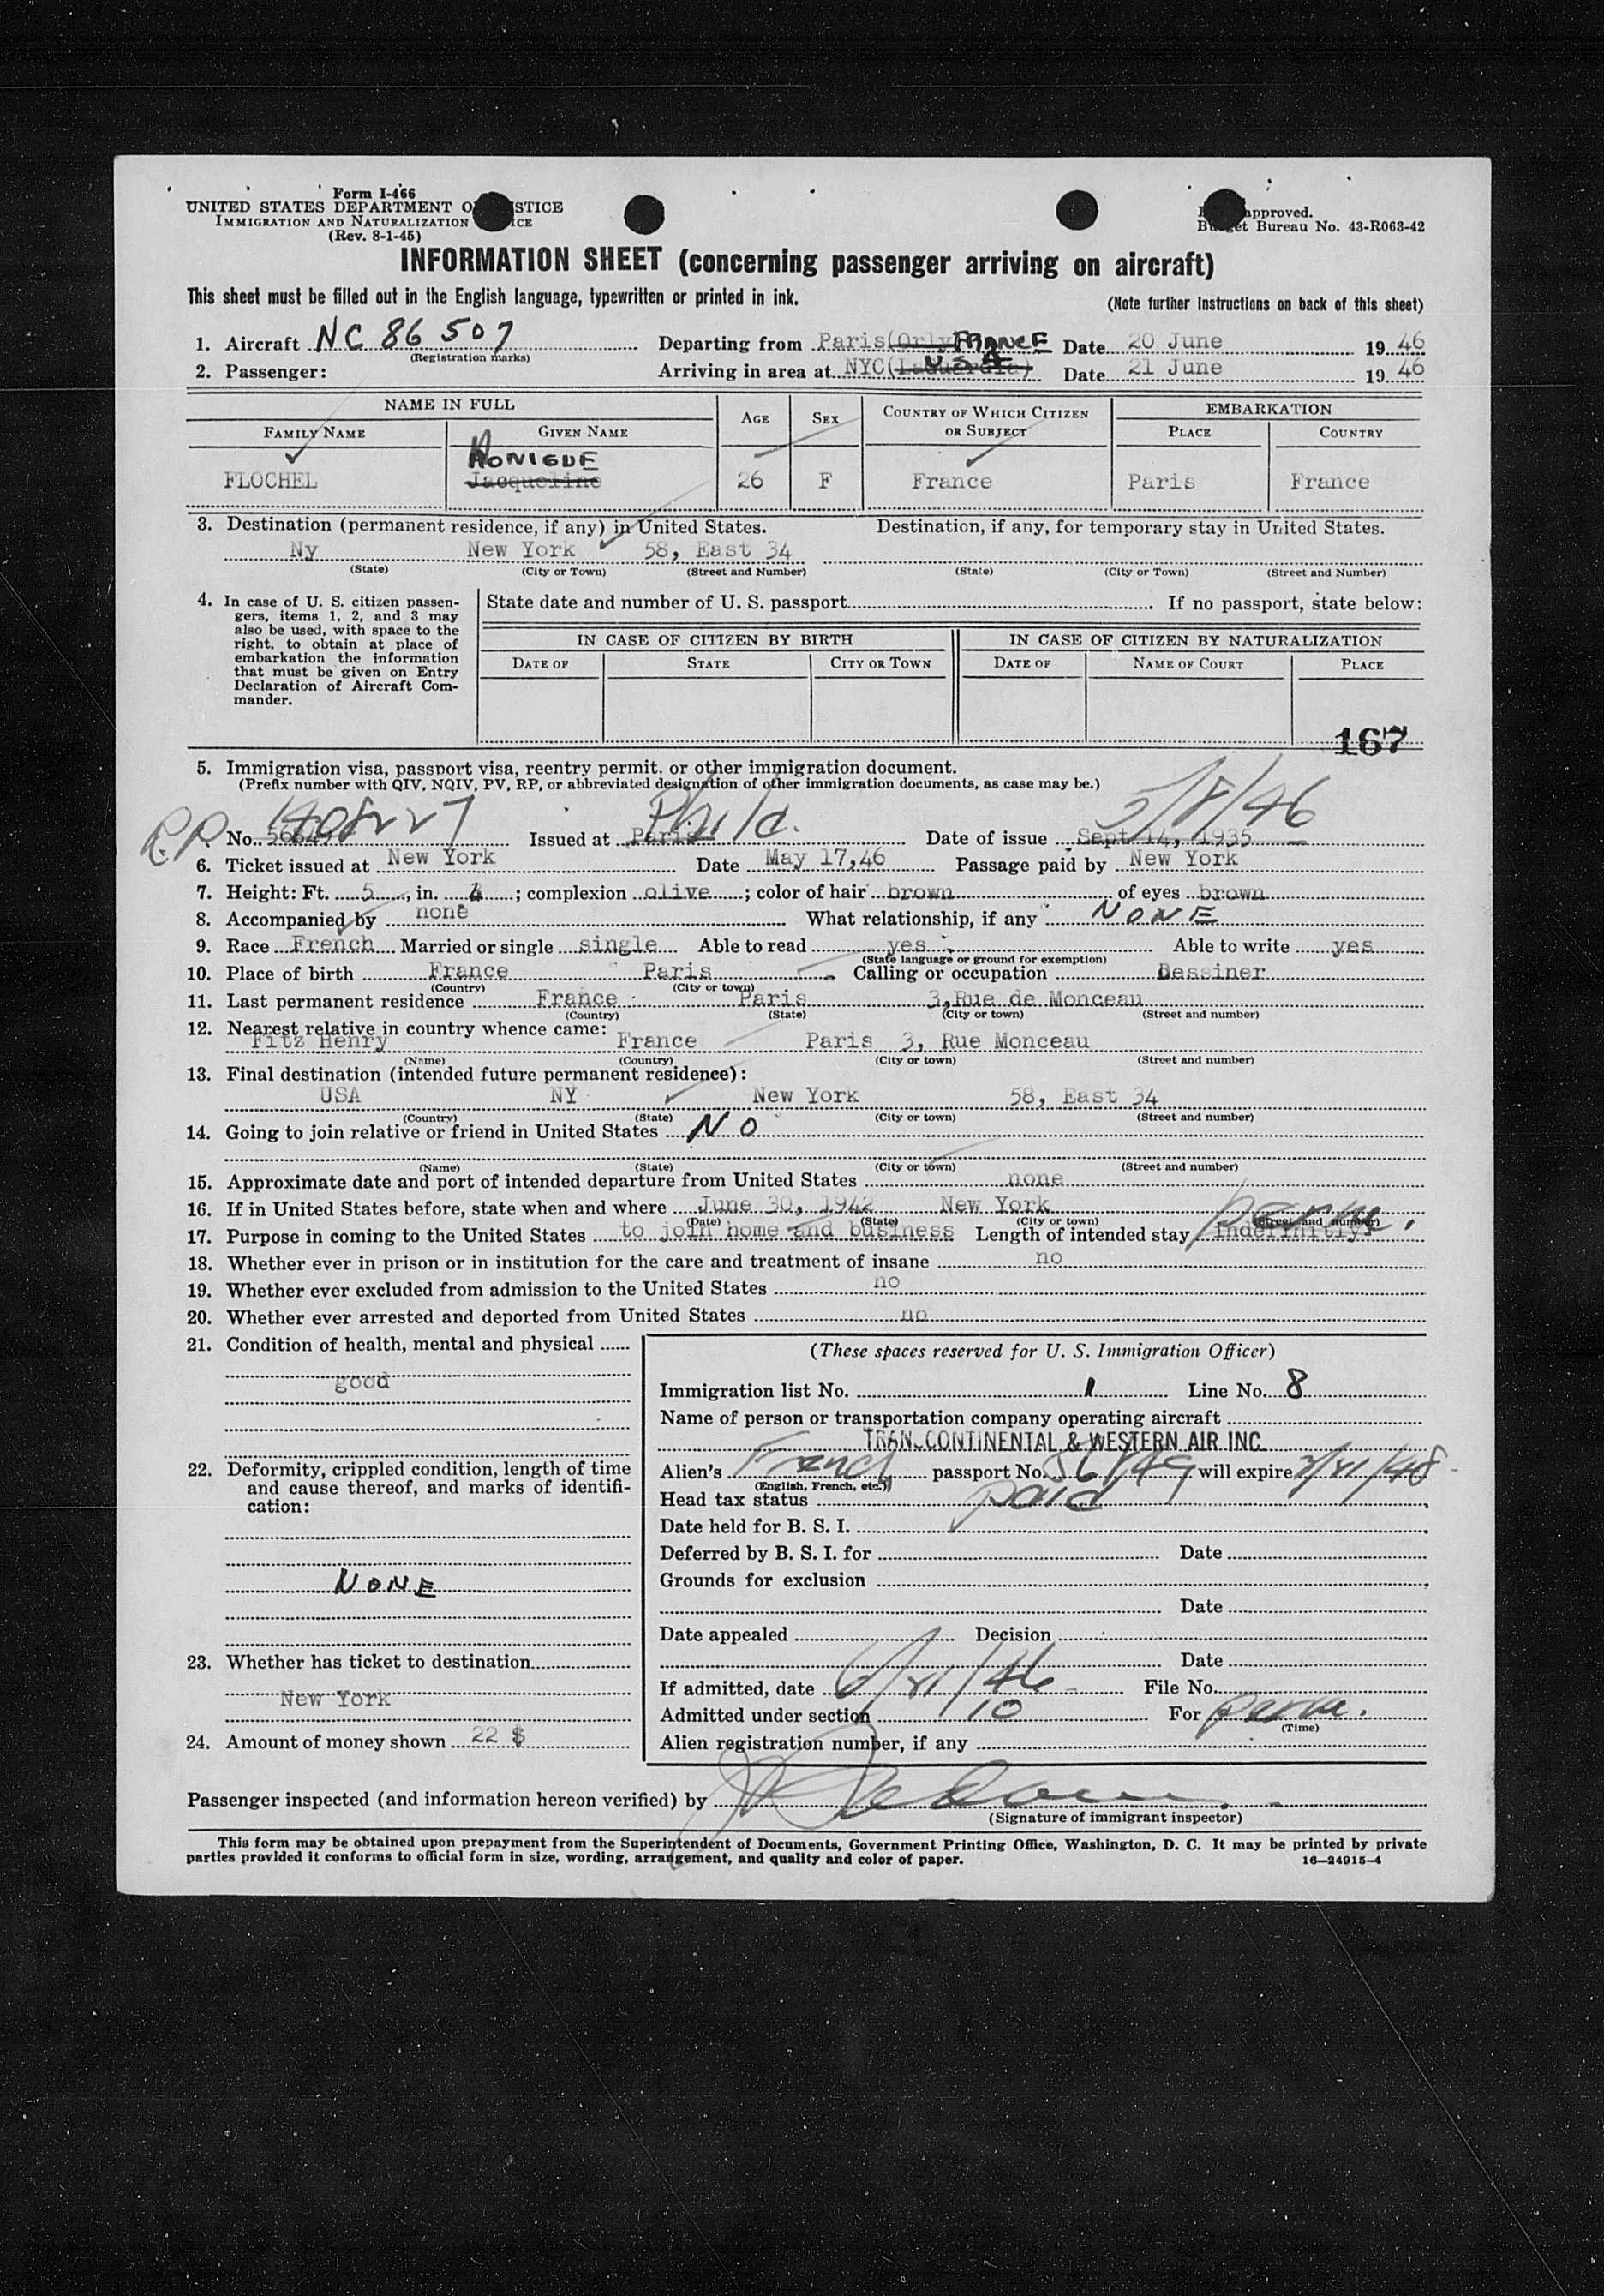 Form I-466
UNITED STATES DEPARTMENT O STICE
IMMIGRATION AND NATURALIZATION ICE
(Rev. 8-1-45)
approved.
Budget Bureau No. 43-R063-42
INFORMATION SHEET (concerning passenger arriving on aircraft)
This sheet must be filled out in the English language, typewritten or printed in ink.
(Note further instructions on back of this sheet)
1. Aircraft NC 86507 Departing from Paris(Orly FRANCE Date 20 June 1946
(Registration marks)
2. Passenger: Arriving in area at NYC(LaGuardia) U.S.A Date 21 June 1946
NAME IN FULL AGE SEX COUNTRY OF WHICH CITIZEN OR SUBJECT EMBARKATION
FAMILY NAME GIVEN NAME PLACE COUNTRY
MONIQUE
FLOCHEL Jacqueline 26 F France Paris France
3. Destination (permanent residence, if any) in United States. Destination, if any, for temporary stay in United States.
Ny New York 58, East 34
(State) (City or Town) (Street and Number) (State) (City or Town) (Street and Number)
4. In case of U. S. citizen passen-
gers, items 1, 2, and 3 may
also be used, with space to the
right, to obtain at place of
embarkation the information
that must be given on Entry
Declaration of Aircraft Com-
mander.
State date and number of U. S. passport If no passport, state below:
IN CASE OF CITIZEN BY BIRTH IN CASE OF CITIZEN BY NATURALIZATION
DATE OF STATE CITY OR TOWN DATE OF NAME OF COURT PLACE
167
5. Immigration visa, passport visa, reentry permit, or other immigration document.
(Prefix number with QIV, NQIV, PV, RP, or abbreviated designation of other immigration documents, as case may be.)
R.P. 1408227 Phila. 5/8/46
No. Issued at Paris Date of issue Sept 14, 1935
6. Ticket issued at New York Date May 17,46 Passage paid by New York
7. Height: Ft. 5, in. ; complexion olive; color of hair brown of eyes brown
8. Accompanied by none What relationship, if any NONE
9. Race French Married or single single Able to read yes Able to write yes
(State language or ground for exemption)
10. Place of birth France Paris Calling or occupation Dessiner
(Country) (City or town)
11. Last permanent residence France Paris 3,Rue de Monceau
(Country) (State) (City or town) (Street and number)
12. Nearest relative in country whence came:
Fitz Henry France Paris 3, Rue Monceau
(Name) (Country) (City or town) (Street and number)
13. Final destination (intended future permanent residence):
USA NY New York 58, East 34
(Country) (State) (City or town) (Street and number)
14. Going to join relative or friend in United States NO
(Name) (State) (City or town) (Street and number)
15. Approximate date and port of intended departure from United States none
16. If in United States before, state when and where June 30, 1942 New York
(Date) (State) (City or town) (Street and number)
perm.
17. Purpose in coming to the United States to join home and business Length of intended stay indefinitly
18. Whether ever in prison or in institution for the care and treatment of insane no
19. Whether ever excluded from admission to the United States no
20. Whether ever arrested and deported from United States no
21. Condition of health, mental and physical
good
22. Deformity, crippled condition, length of time
and cause thereof, and marks of identifi-
cation:
NONE
23. Whether has ticket to destination
New York
24. Amount of money shown 22 $
(These spaces reserved for U. S. Immigration Officer)
Immigration list No. 1 Line No. 8
Name of person or transportation company operating aircraft
TRANSCONTINENTAL & WESTERN AIR INC.
Alien's French passport No. 56849 will expire 2/21/48
(English, French, etc.)
Head tax status paid
Date held for B. S. I.
Deferred by B. S. I. for Date
Grounds for exclusion
Date
Date appealed Decision
Date
If admitted, date 6/21/46 File No.
Admitted under section 10 For perm.
(Time)
Alien registration number, if any
Passenger inspected (and information hereon verified) by
(Signature of immigrant inspector)
This form may be obtained upon prepayment from the Superintendent of Documents, Government Printing Office, Washington, D. C. It may be printed by private
parties provided it conforms to official form in size, wording, arrangement, and quality and color of paper. 16—24915-4